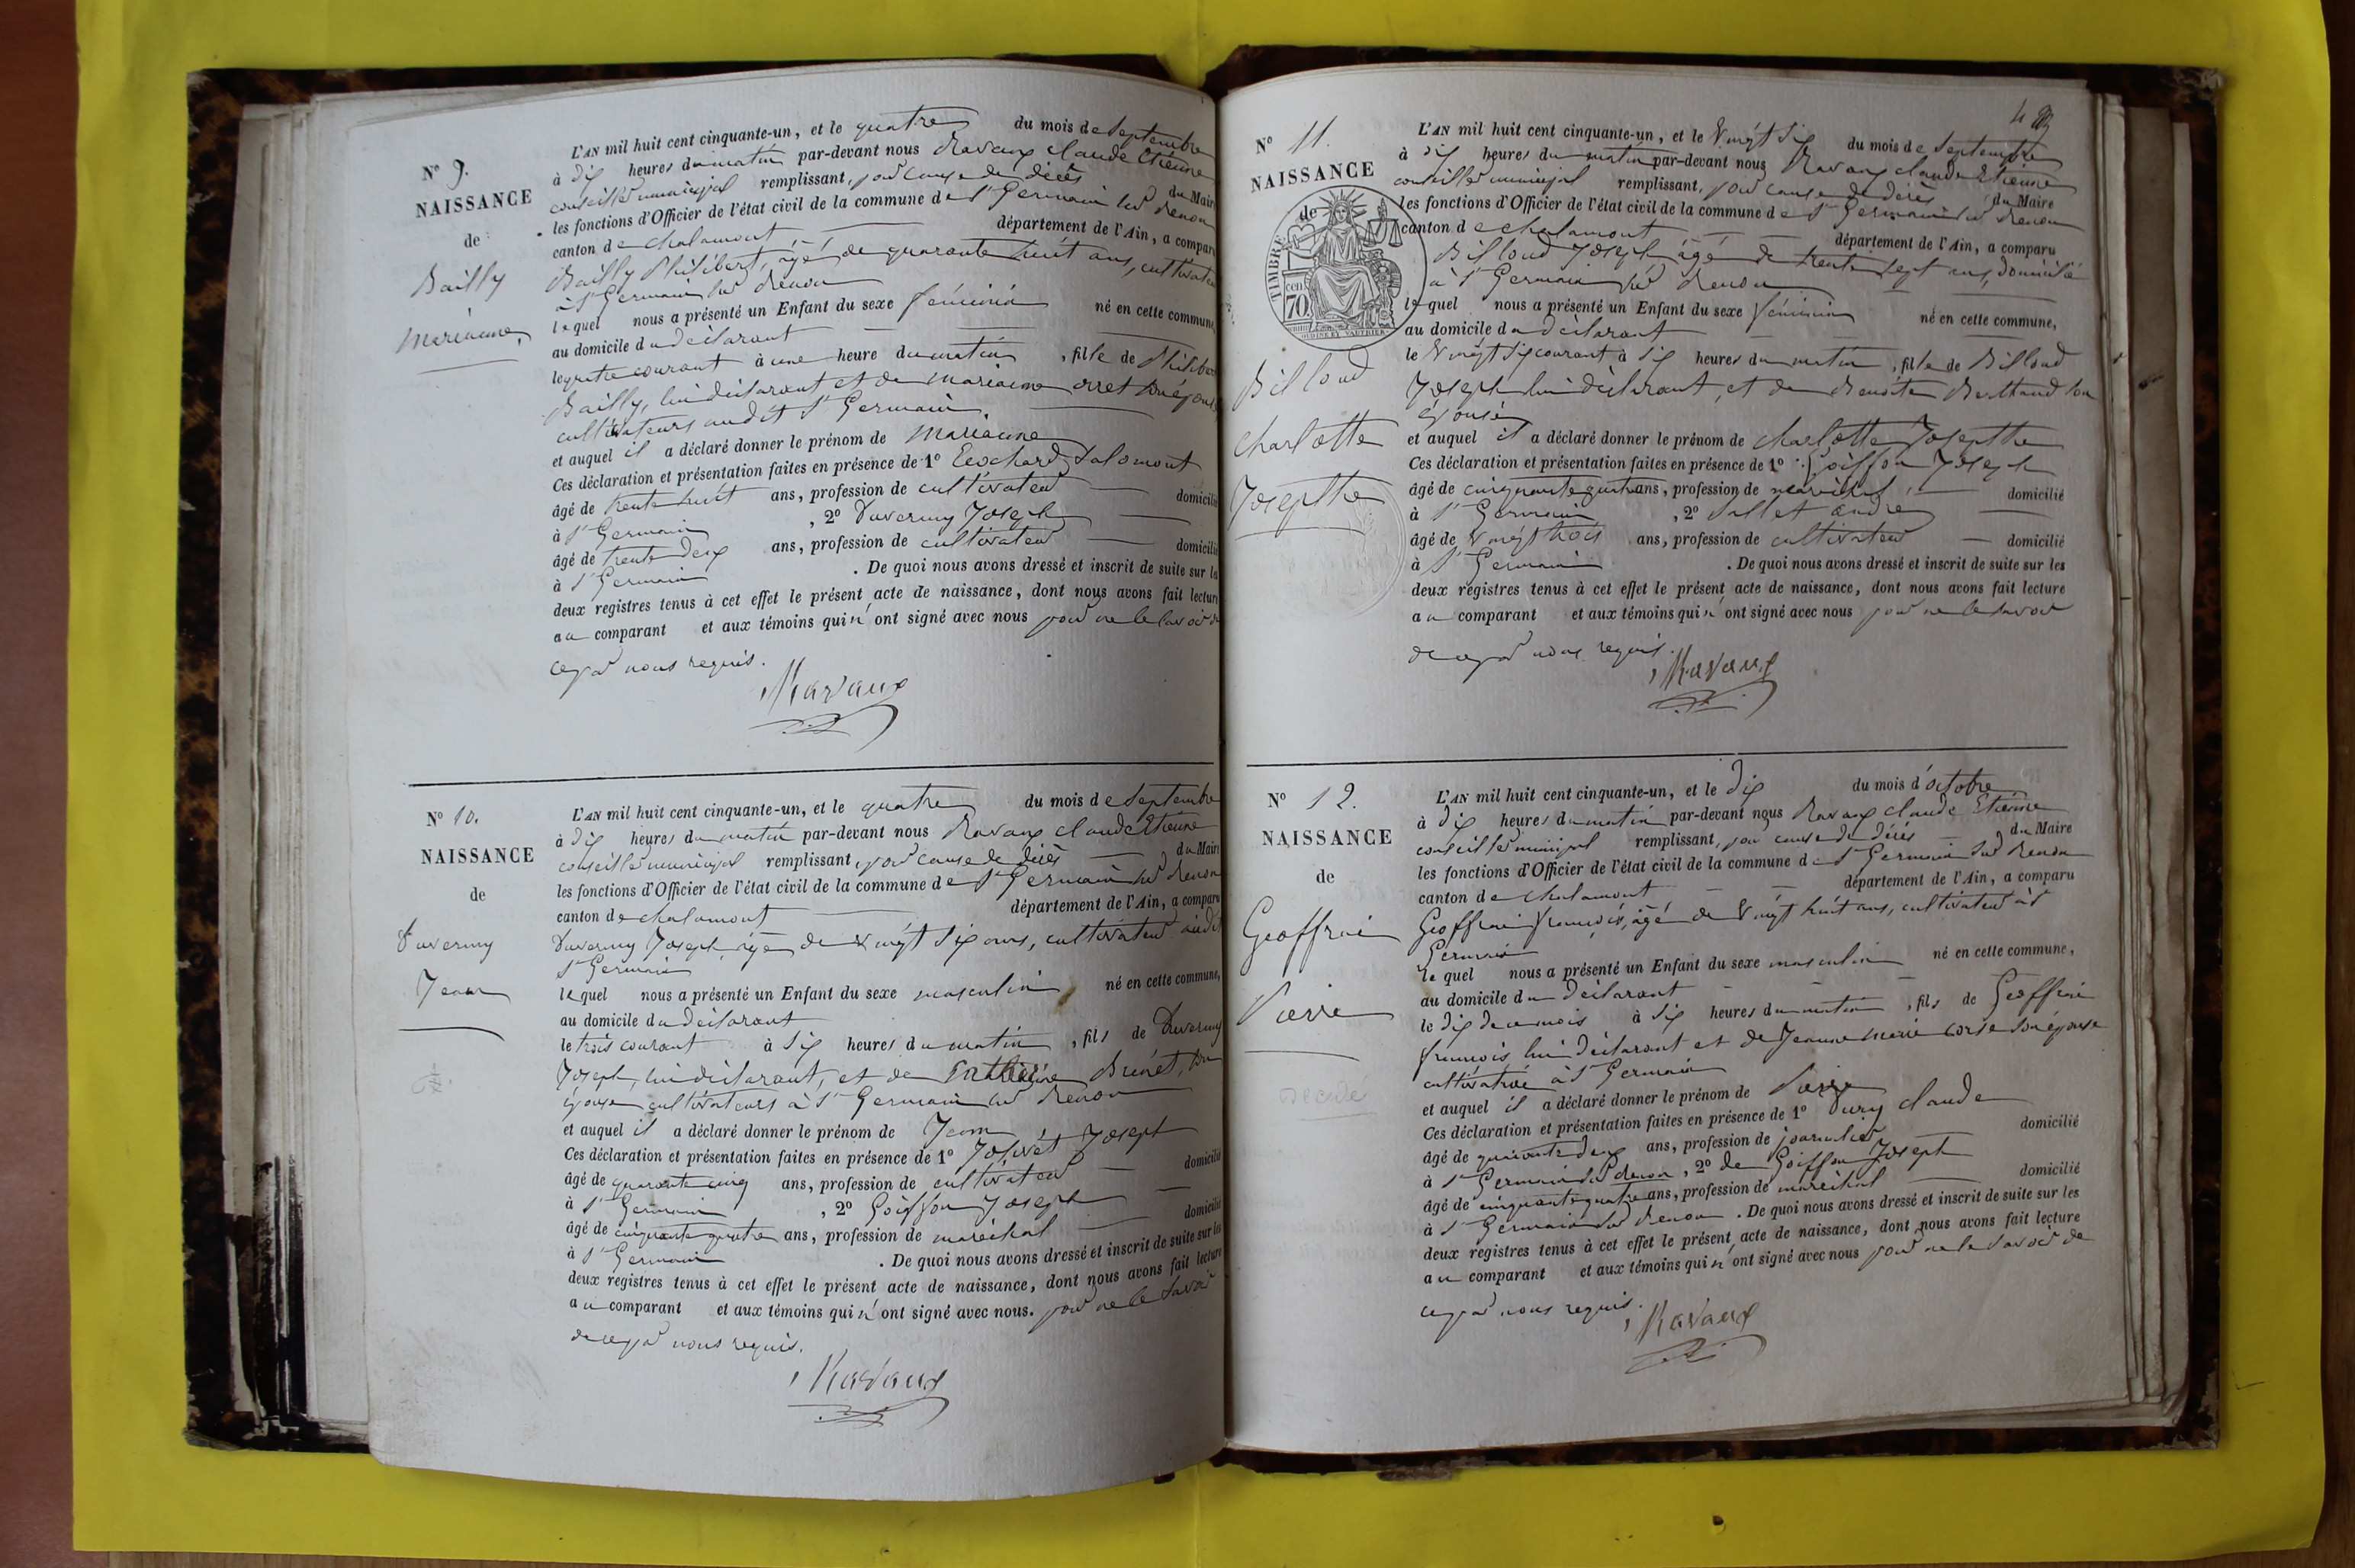 N° 9.
NAISSANCE
de
Bailly
Marianne
L'AN mil huit cent cinquante-un, et le quatre du mois de Septembre
à dix heures du matin par-devant nous Ravaux Claude Etienne
conseiller municipal remplissant, pour cause de décès du Maire
les fonctions d'Officier de l'état civil de la commune de St Germain sur Renon
canton de Chalamont département de l'Ain, a comparu
Bailly Philibert, âgé de quarante huit ans, cultivateur
à St Germain sur Renon
lequel nous a présenté un Enfant du sexe féminin né en cette commune,
au domicile du déclarant
le quatre courant à une heure du matin, fille de Philibert
Bailly, lui déclarant et de Marianne orret son épouse
cultivateurs audit St Germain.
et auquel il a déclaré donner le prénom de Marianne
Ces déclaration et présentation faites en présence de 1° Salomont
âgé de trente huit ans, profession de cultivateur domicilié
à St Germain, 2° Duverny Joseph
âgé de trente deux ans, profession de cultivateur domicilié
à St Germain. De quoi nous avons dressé et inscrit de suite sur les
deux registres tenus à cet effet le présent acte de naissance, dont nous avons fait lecture
au comparant et aux témoins qui n'ont signé avec nous pour ne le savoir de
ce par nous requis.
Ravaux
N° 10.
NAISSANCE
de
Duverny
Jean
L'AN mil huit cent cinquante-un, et le quatre du mois de Septembre
à dix heures du matin par-devant nous Ravaux Claude Etienne
conseiller municipal remplissant, pour cause de décès du Maire
les fonctions d'Officier de l'état civil de la commune de St Germain sur Renon
canton de Chalamont département de l'Ain, a comparu
Duverny Joseph, âgé de vingt six ans, cultivateur audit
St Germain
lequel nous a présenté un Enfant du sexe masculin né en cette commune,
au domicile du déclarant
le trois courant à six heures du matin, fils de Duverny
Joseph, lui déclarant, et de Cathérine Brunet, son
épouse cultivateurs à St Germain sur Renon
et auquel il a déclaré donner le prénom de Jean
Ces déclaration et présentation faites en présence de 1° Jolivet Joseph
âgé de quarante cinq ans, profession de cultivateur domicilié
à St Germain, 2° Goiffon Joseph
âgé de cinquante quatre ans, profession de maréchal domicilié
à St Germain. De quoi nous avons dressé et inscrit de suite sur les
deux registres tenus à cet effet le présent acte de naissance, dont nous avons fait lecture
au comparant et aux témoins qui n'ont signé avec nous. pour ne le savoir
de ce par nous requis.
Ravaux
N° 11.
NAISSANCE
de
TIMBRE
70 cen
Billoud
Charlotte
Josepthe
L'AN mil huit cent cinquante-un, et le vingt six du mois de Septembre
à dix heures du matin par-devant nous Ravaux Claude Etienne
conseiller municipal remplissant, pour cause de décès du Maire
les fonctions d'Officier de l'état civil de la commune de St Germain sur Renon
canton de Chalamont département de l'Ain, a comparu
Billoud Joseph âgé de trente sept ans, domicilié
à St Germain sur Renon
lequel nous a présenté un Enfant du sexe féminin né en cette commune,
au domicile du déclarant
le vingt six courant à six heures du matin, fille de Billoud
Joseph lui déclarant, et de Benoite Berthaud son
épouse
et auquel il a déclaré donner le prénom de Charlotte Josepthe
Ces déclaration et présentation faites en présence de 1° Goiffon Joseph
âgé de cinquante quatre ans, profession de maréchal, domicilié
à St Germain, 2° Sallet andre
âgé de vingt trois ans, profession de cultivateur domicilié
à St Germain. De quoi nous avons dressé et inscrit de suite sur les
deux registres tenus à cet effet le présent acte de naissance, dont nous avons fait lecture
au comparant et aux témoins qui n'ont signé avec nous pour ne le savoir
de ce par nous requis.
Ravaux
N° 12.
NAISSANCE
de
Geoffrai
Pierre
décédé
L'AN mil huit cent cinquante-un, et le dix du mois d'octobre
à dix heures du matin par-devant nous Ravaux Claude Etienne
conseiller municipal remplissant, pour cause de décès du Maire
les fonctions d'Officier de l'état civil de la commune de St Germain sur Renon
canton de Chalamont département de l'Ain, a comparu
Geoffrai françois, âgé de vingt huit ans, cultivateur à St
Germain
lequel nous a présenté un Enfant du sexe masculin né en cette commune,
au domicile du déclarant
le dix de ce mois à six heures du matin, fils de Geoffrai
françois lui déclarant et de Jeanne Marie Corse son épouse
cultivatrice à St Germain
et auquel il a déclaré donner le prénom de Pierre
Ces déclaration et présentation faites en présence de 1° Dury Claude
âgé de quarante deux ans, profession de journalier domicilié
à St Germain sur Renon, 2° de Goiffon Joseph
âgé de cinquante quatre ans, profession de maréchal domicilié
à St Germain sur Renon. De quoi nous avons dressé et inscrit de suite sur les
deux registres tenus à cet effet le présent acte de naissance, dont nous avons fait lecture
au comparant et aux témoins qui n'ont signé avec nous pour ne le savoir de
ce par nous requis.
Ravaux